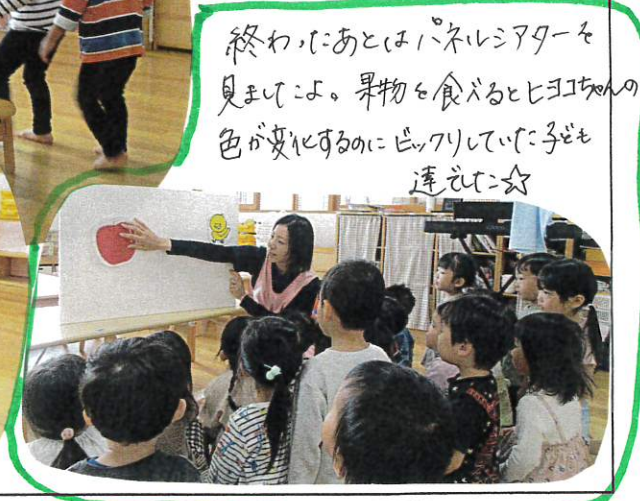 終わったあとはパネルシアターを
見ましたよ。果物を食べるとヒヨコちゃんの
色が変化するのにビックリしていた子ども
達でした☆